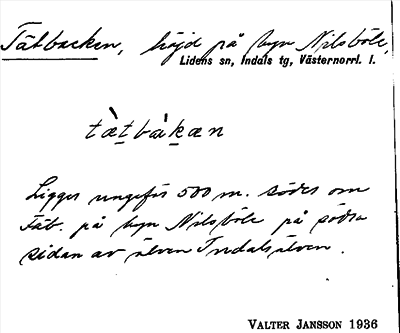 Tätbacken, höjd på byn Nilsböle,
Lidens sn, Indals tg, Västernorrl. l.
tæ̀t̠bàk̠æn
Ligger ungefär 500 m. söder om
Täb. på byn Nilsböle på södra
sidan av älven Indalsälven.
VALTER JANSSON 1936